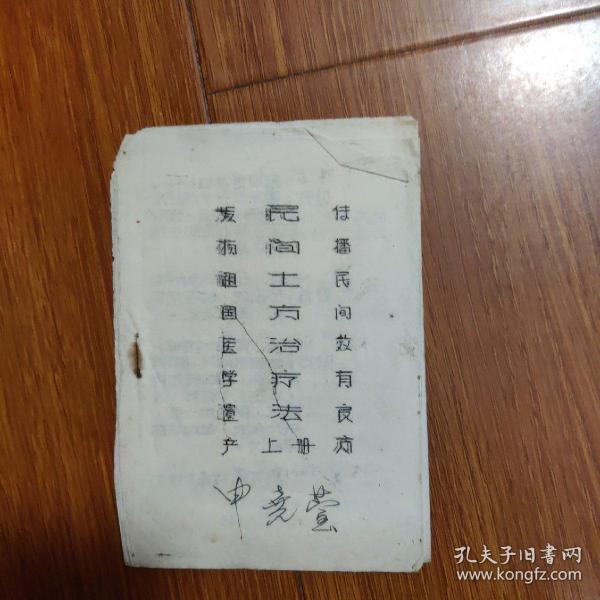 传播民间效有良
民间土方治疗法
上册
发扬祖国医学遗产
申尧萱
孔夫子旧書网
www.kongfz.com